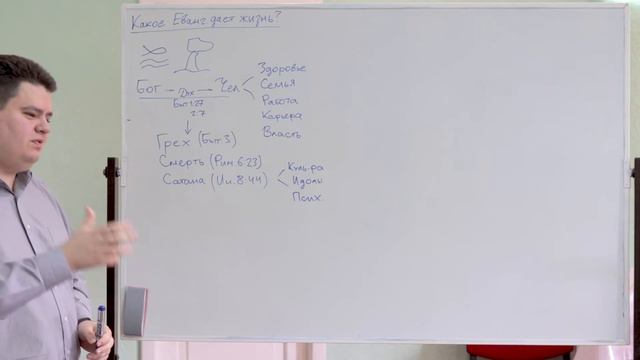 Какое Еванг дает жизнь?
Бог → Дух → Чел
Быт 1:27
2:7
Здоровье
Семья
Работа
Карьера
Власть
Грех (Быт 3)
Смерть (Рим 6:23)
Сатана (Ин. 8:44)
Куль-ра
Идолы
Псих.